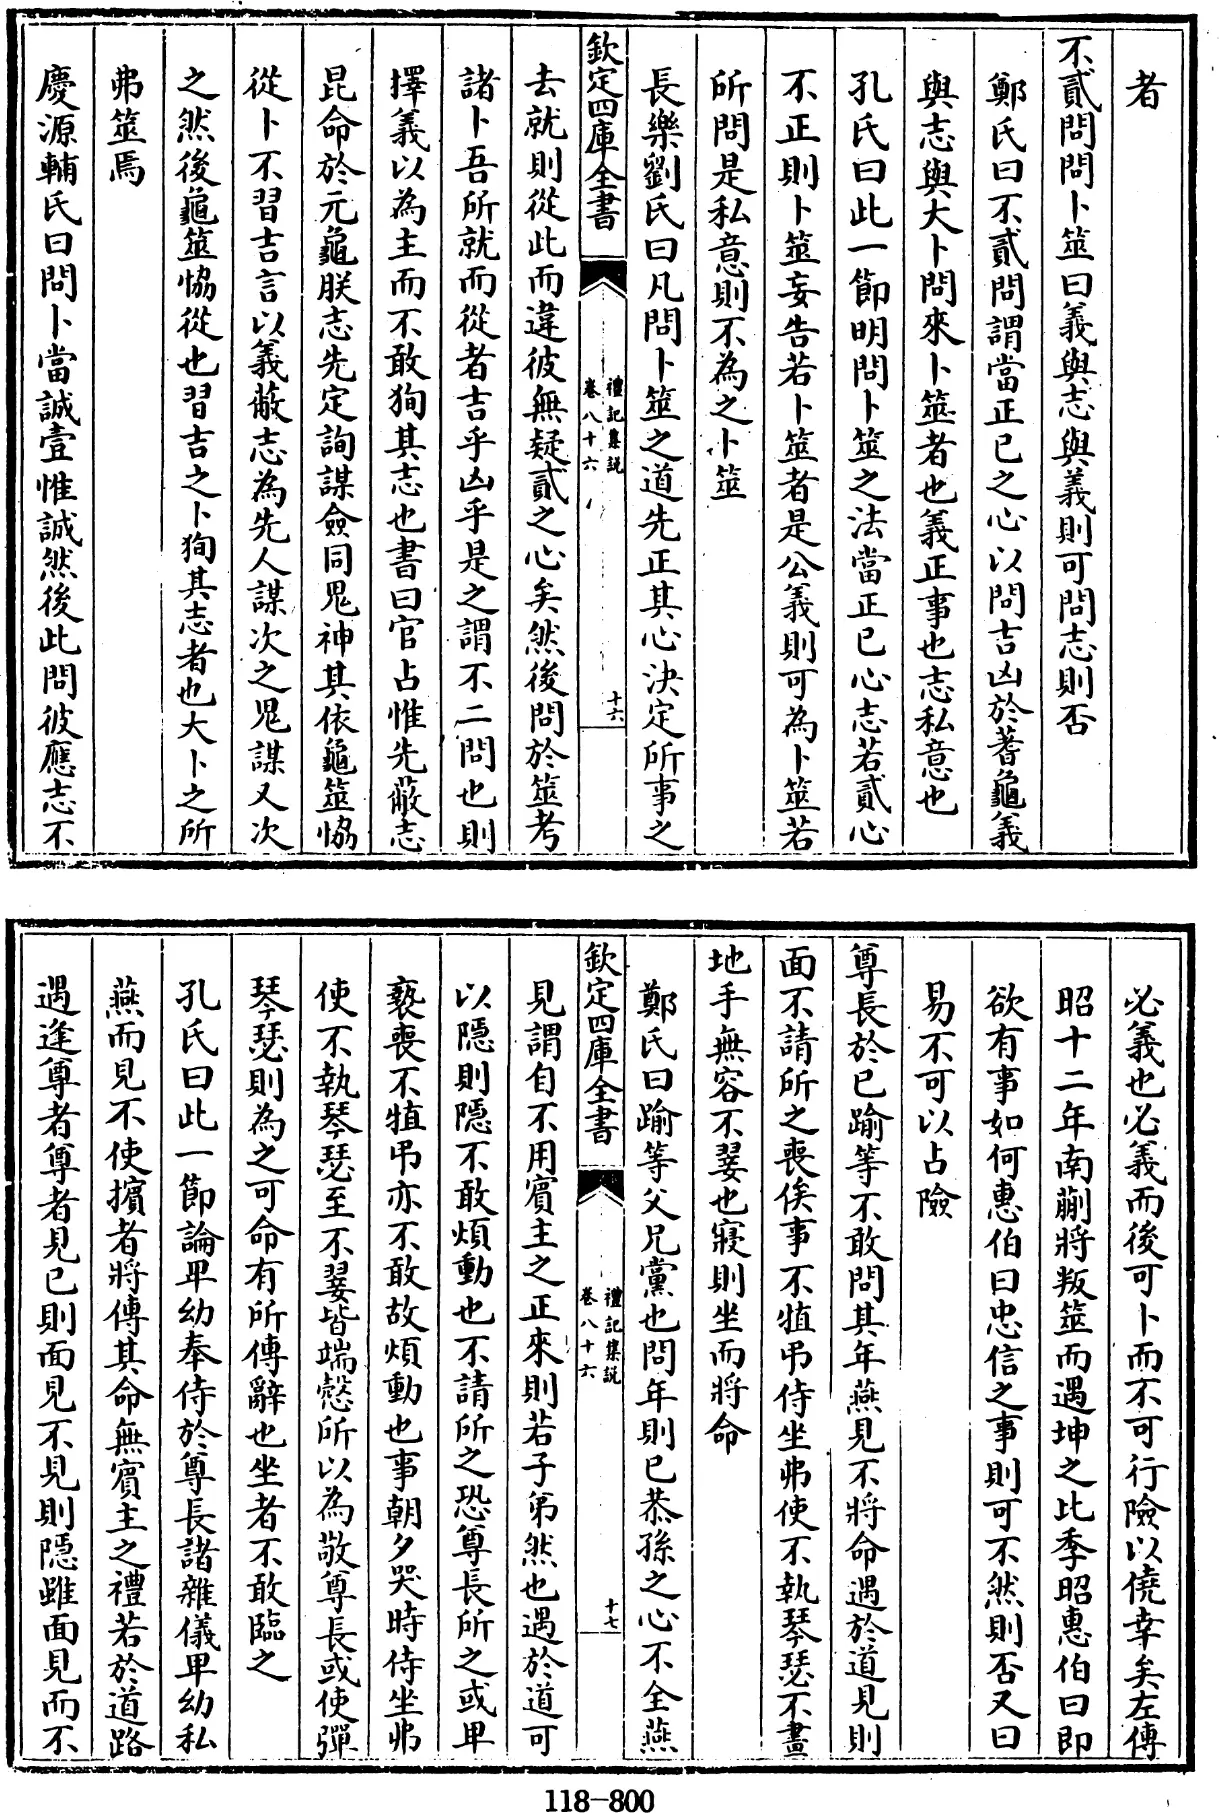 者
不貳問問卜筮曰義與志與義則可問志則否
鄭氏曰不貳問謂當正已之心以問吉凶於蓍龜義
與志與大卜問來卜筮者也義正事也志私意也
孔氏曰此一節明問卜筮之法當正已心志若貳心
不正則卜筮妄告若卜筮者是公義則可為卜筮若
所問是私意則不為之卜筮
長樂劉氏曰凡問卜筮之道先正其心決定所事之
欽定四庫全書
禮記集說
卷八十六
十六
去就則從此而違彼無疑貳之心矣然後問於筮考
諸卜吾所就而從者吉乎凶乎是之謂不二問也則
擇義以為主而不敢狥其志也書曰官占惟先蔽志
昆命於元龜朕志先定詢謀僉同鬼神其依龜筮恊
從卜不習吉言以義蔽志為先人謀次之鬼謀又次
之然後龜筮恊從也習吉之卜狥其志者也大卜之所
弗筮焉
慶源輔氏曰問卜當誠壹惟誠然後此問彼應志不
必義也必義而後可卜而不可行險以僥幸矣左傳
昭十二年南蒯將叛筮而遇坤之比季昭惠伯曰即
欲有事如何惠伯曰忠信之事則可不然則否又曰
易不可以占險
尊長於已踰等不敢問其年燕見不將命遇於道見則
面不請所之喪俟事不犆弔侍坐弗使不執琴瑟不畫
地手無容不翣也寢則坐而將命
鄭氏曰踰等父兄黨也問年則已恭孫之心不全燕
欽定四庫全書
禮記集說
卷八十六
十七
見謂自不用賓主之正來則若子弟然也遇於道可
以隱則隱不敢煩動也不請所之恐尊長所之或卑
褻喪不犆弔亦不敢故煩動也事朝夕哭時侍坐弗
使不執琴瑟至不翣皆端慤所以為敬尊長或使彈
琴瑟則為之可命有所傳辭也坐者不敢臨之
孔氏曰此一節論卑幼奉侍於尊長諸雜儀卑幼私
燕而見不使擯者將傳其命無賓主之禮若於道路
遇逢尊者尊者見已則面見不見則隱雖面見而不
118-800